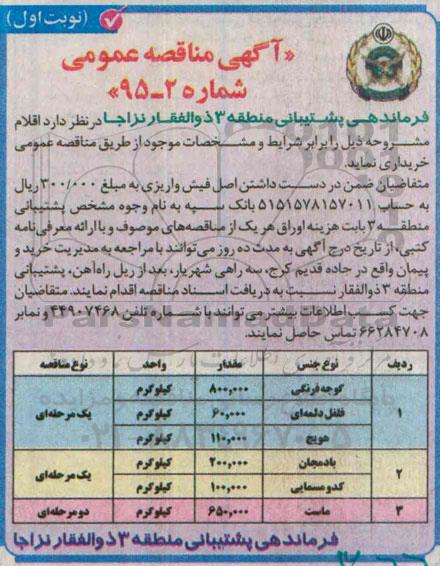 (نوبت اول)
«آگهی مناقصه عمومی
شماره ۲ـ۹۵»
فرماندهی پشتیبانی منطقه ۳ ذوالفقار نزاجا در نظر دارد اقلام
مشروحه ذیل را برابر شرایط و مشخصات موجود از طریق مناقصه عمومی
خریداری نماید.
متقاضیان ضمن در دست داشتن اصل فیش واریزی به مبلغ ۳۰۰/۰۰۰ ریال
به حساب ۵۱۵۱۵۷۸۱۵۷۰۱۱ بانک سپه به نام وجوه مشخص پشتیبانی
منطقه ۳ بابت هزینه اوراق هر یک از مناقصه‌های موصوف و با ارائه معرفی‌نامه
کتبی، از تاریخ درج آگهی به مدت ده روز می‌توانند با مراجعه به مدیریت خرید و
پیمان واقع در جاده قدیم کرج، سه راهی شهریار، بعد از ریل راه‌آهن، پشتیبانی
منطقه ۳ ذوالفقار نسبت به دریافت اسناد مناقصه اقدام نمایند. متقاضیان
جهت کسب اطلاعات بیشتر می‌توانند با شماره تلفن ۴۴۹۰۷۴۶۸ و نمابر
۶۶۲۸۴۷۰۸ تماس حاصل نمایند.
ردیف نوع جنس مقدار واحد نوع مناقصه
۱ گوجه فرنگی ۸۰۰,۰۰۰ کیلوگرم یک مرحله‌ای
فلفل دلمه‌ای ۶۰,۰۰۰ کیلوگرم
هویج ۱۱۰,۰۰۰ کیلوگرم
۲ بادمجان ۲۰۰,۰۰۰ کیلوگرم یک مرحله‌ای
کدو مسمایی ۱۰۰,۰۰۰ کیلوگرم
۳ ماست ۶۵۰,۰۰۰ کیلوگرم دو مرحله‌ای
فرماندهی پشتیبانی منطقه ۳ ذوالفقار نزاجا